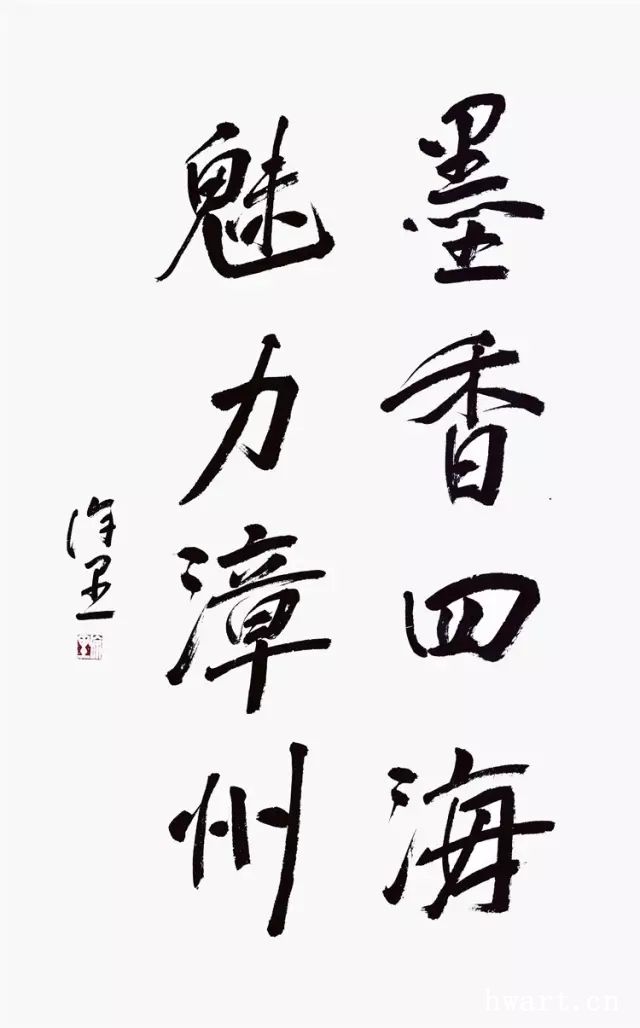 墨香四海
魅力漳州
hwart.cn